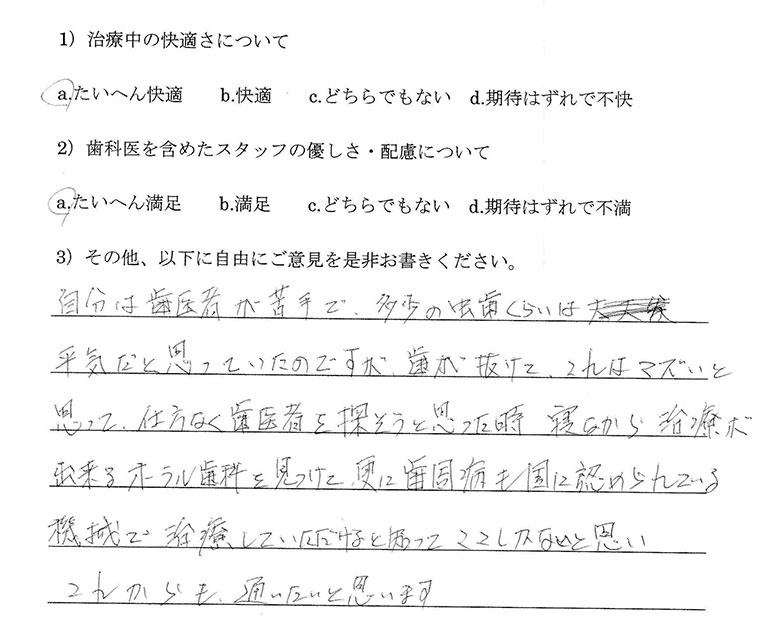 1）治療中の快適さについて
a.たいへん快適　b.快適　c.どちらでもない　d.期待はずれで不快
2）歯科医を含めたスタッフの優しさ・配慮について
a.たいへん満足　b.満足　c.どちらでもない　d.期待はずれで不満
3）その他、以下に自由にご意見を是非お書きください。
自分は歯医者が苦手で、多少の虫歯くらいは
平気だと思っていたのですが、歯が抜けて、これはマズいと
思って、仕方なく歯医者を探そうと思った時 寝ながら 治療が
出来るホーラル歯科を見つけて、更に歯周病も国に認められている
機械で 治療していただけると知って ココしかないと思い
これからも、通いたいと思います